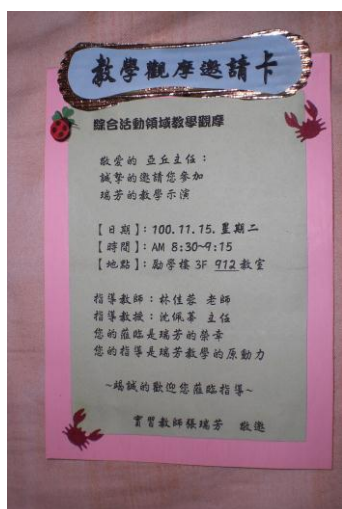 教學觀摩邀請卡
綜合活動領域教學觀摩
敬愛的 亞丘主任：
誠摯的邀請您參加
瑞芳的教學示演
【日期】：100.11.15.星期二
【時間】：AM 8:30~9:15
【地點】：勵學樓 3F 912教室
指導教師：林佳蓉 老師
指導教授：沈佩蓁 主任
您的蒞臨是瑞芳的榮幸
您的指導是瑞芳教學的原動力
~竭誠的歡迎您蒞臨指導~
實習教師張瑞芳 敬邀